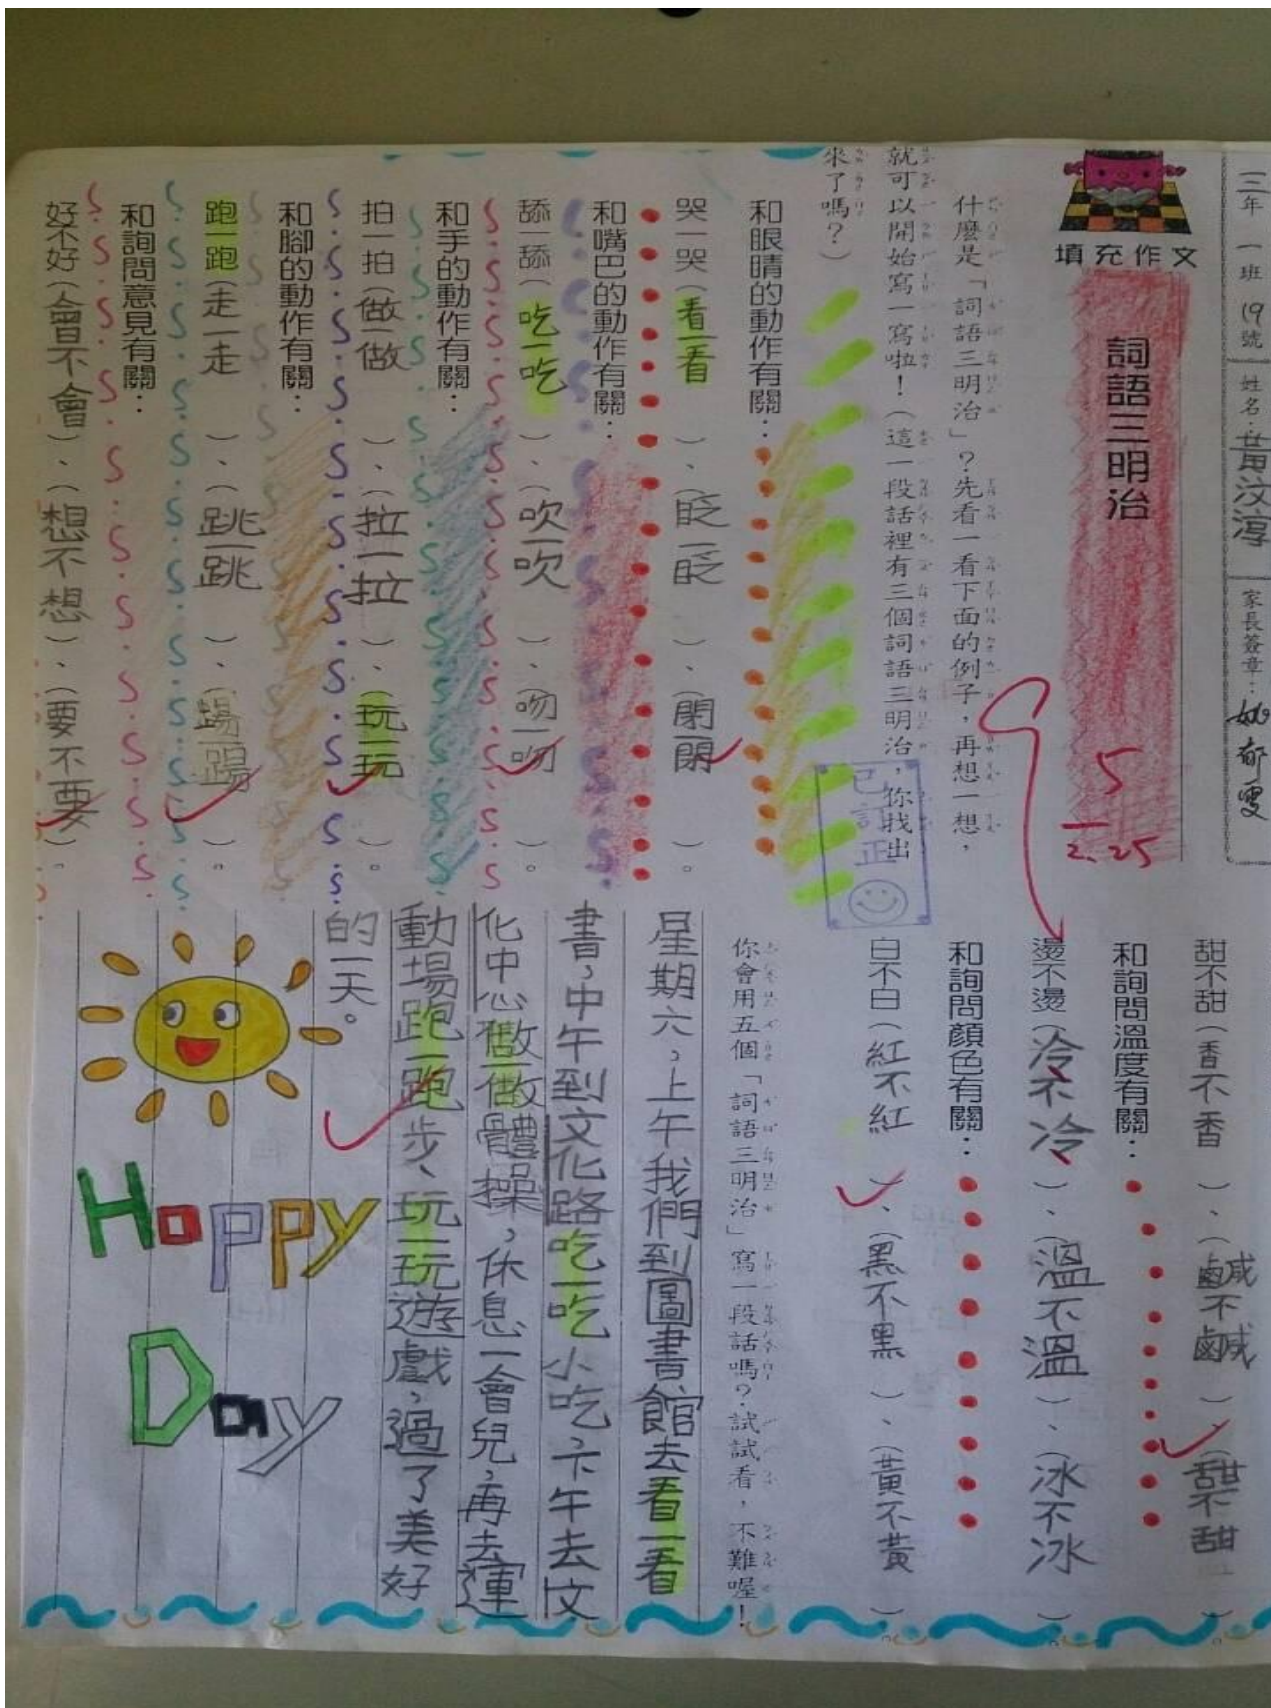 三年一班19號 姓名：黃汶淳 家長簽章：姚郁雯
填充作文
詞語三明治
5
2.25
什麼是「詞語三明治」？先看一看下面的例子，再想一想，
就可以開始寫一寫啦！（這一段話裡有三個詞語三明治，你找出
來了嗎？）
已訂正
和眼睛的動作有關：
哭一哭（看一看）、（眨一眨）、（閉一閉）。
和嘴巴的動作有關：
舔一舔（吃一吃）、（吹一吹）、（吻一吻）。
和手的動作有關：
拍一拍（做一做）、（拉一拉）、（玩一玩）。
和腳的動作有關：
跑一跑（走一走）、（跳一跳）、（踢一踢）。
和詢問意見有關：
好不好（會不會）、（想不想）、（要不要）。
甜不甜（香不香）、（鹹不鹹）、（甜不甜）。
和詢問溫度有關：
燙不燙（冷不冷）、（溫不溫）、（冰不冰）
和詢問顏色有關：
白不白（紅不紅）、（黑不黑）、（黃不黃）。
你會用五個「詞語三明治」寫一段話嗎？試試看，不難喔！
星期六，上午我們到圖書館去看一看
書，中午到文化路吃一吃小吃，下午去文
化中心做一做體操，休息一會兒，再去運
動場跑一跑步、玩一玩遊戲，過了美好
的一天。
Happy
Day